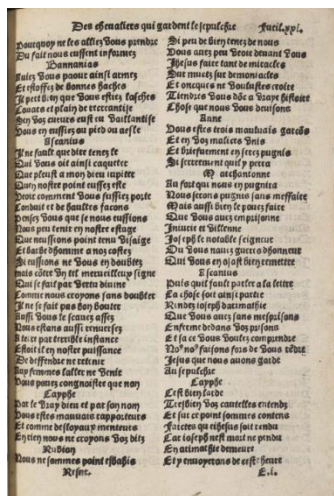 Des chevaliers qui gardent le sepulchre Fueil.xxj.
Pourquoy ne les alliez vous prendre
Du fait nous eussent informez
Bannanias
Aviez vous paour ainsi armez
Et estoffez de bonnes haches
Il pert bien que vous estes lasches
Couars et plain de recreantise
Se voz cueurs eust eu vaillantise
Vous en eussiez ou pied ou aesle
Ascanius
Il ne fault que dire tenez le
Qui vous oit ainsi caqueter
Que pleust a mon dieu iupiter
Qu en nostre point eussez este
Droit comment vous fussiez porte
Couart et de haultz facons
Pensez vous que se nous eussions
Nous peu tenir en nostre estage
Que neussions point tenu visaige
Et barbe dhomme a noz costez
Si eussions ne vous en doubtez
mais côtre vng tel merveilleux signe
Qui se fait par vertu divine
Comme nous croyons sans doubter
Il ne se fait pas bon bouter
Aussi vous le scavez assez
Nous estans aussi renversez
A terre par terrible instance
Estoit il en nostre puissance
De deffendre ne retenir
Aux femmes laller ne venir
Vous povez congnoistre que non
Cayphe
Par le vray dieu et par son nom
Vous estes mauvais rapporteurs
Et comme desloyaux menteurs
En rien nous ne croyons voz ditz
Rubion
Nous ne sommes point esbahis
Resur.
Si peu de bien tenez de nous
Vous avez peu veoir devant vous
Jhesus faire tant de miracles
Sur muetz sur demoniacles
Et oncques ne voulustes croire
Tiendrez vous dôc a vraye histoire
Chose que nous vous devisons
Anne
Vous estes trois mauvais garcôs
Et en voz malices finis
Et briefvement en serez pugnis
Si secretement quil y perra
Marchantonne
Au fort qui nous en pugnira
Nous serons pugnis sans meffaire
Mais aussi bien le povez faire
Que vous avez emprisonne
Iniurie et villenne
Joseph le notable seigneur
Ou vous navez guerres dhonneur
Qui vous en osast bien remettre
Ascanius
Puis quil fault parler a la lettre
La chose soit ainsi partie
Rendez ioseph darimathie
Que vous avez sans mesprisons
Enferme dedans voz prisons
Et se ce vous voulez comprendre
No⁹ no⁹ faisons fors de vous rêdre
Jesus que nous avons garde
Au sepulchre
Cayphe
Cest bien larde
Tresbien voz cautelles entendz
Et sur ce point sommes contens
Faictes que ihesus soit rendu
Car ioseph nest mort ne pendu
En arimathie demeure
Et y envoyrons de ceste heure
E.i.